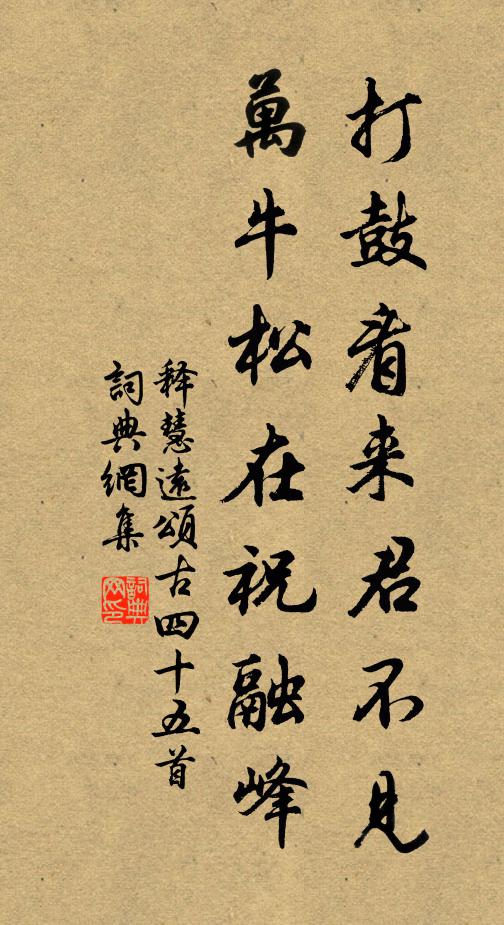 打鼓看来君不见
萬牛松在祝融峰
释慧遠頌古四十五首
詞典網集
詞典网印